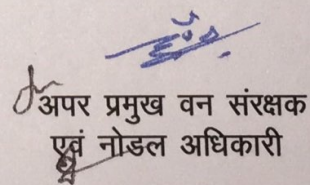 अपर प्रमुख वन संरक्षक
एवं नोडल अधिकारी